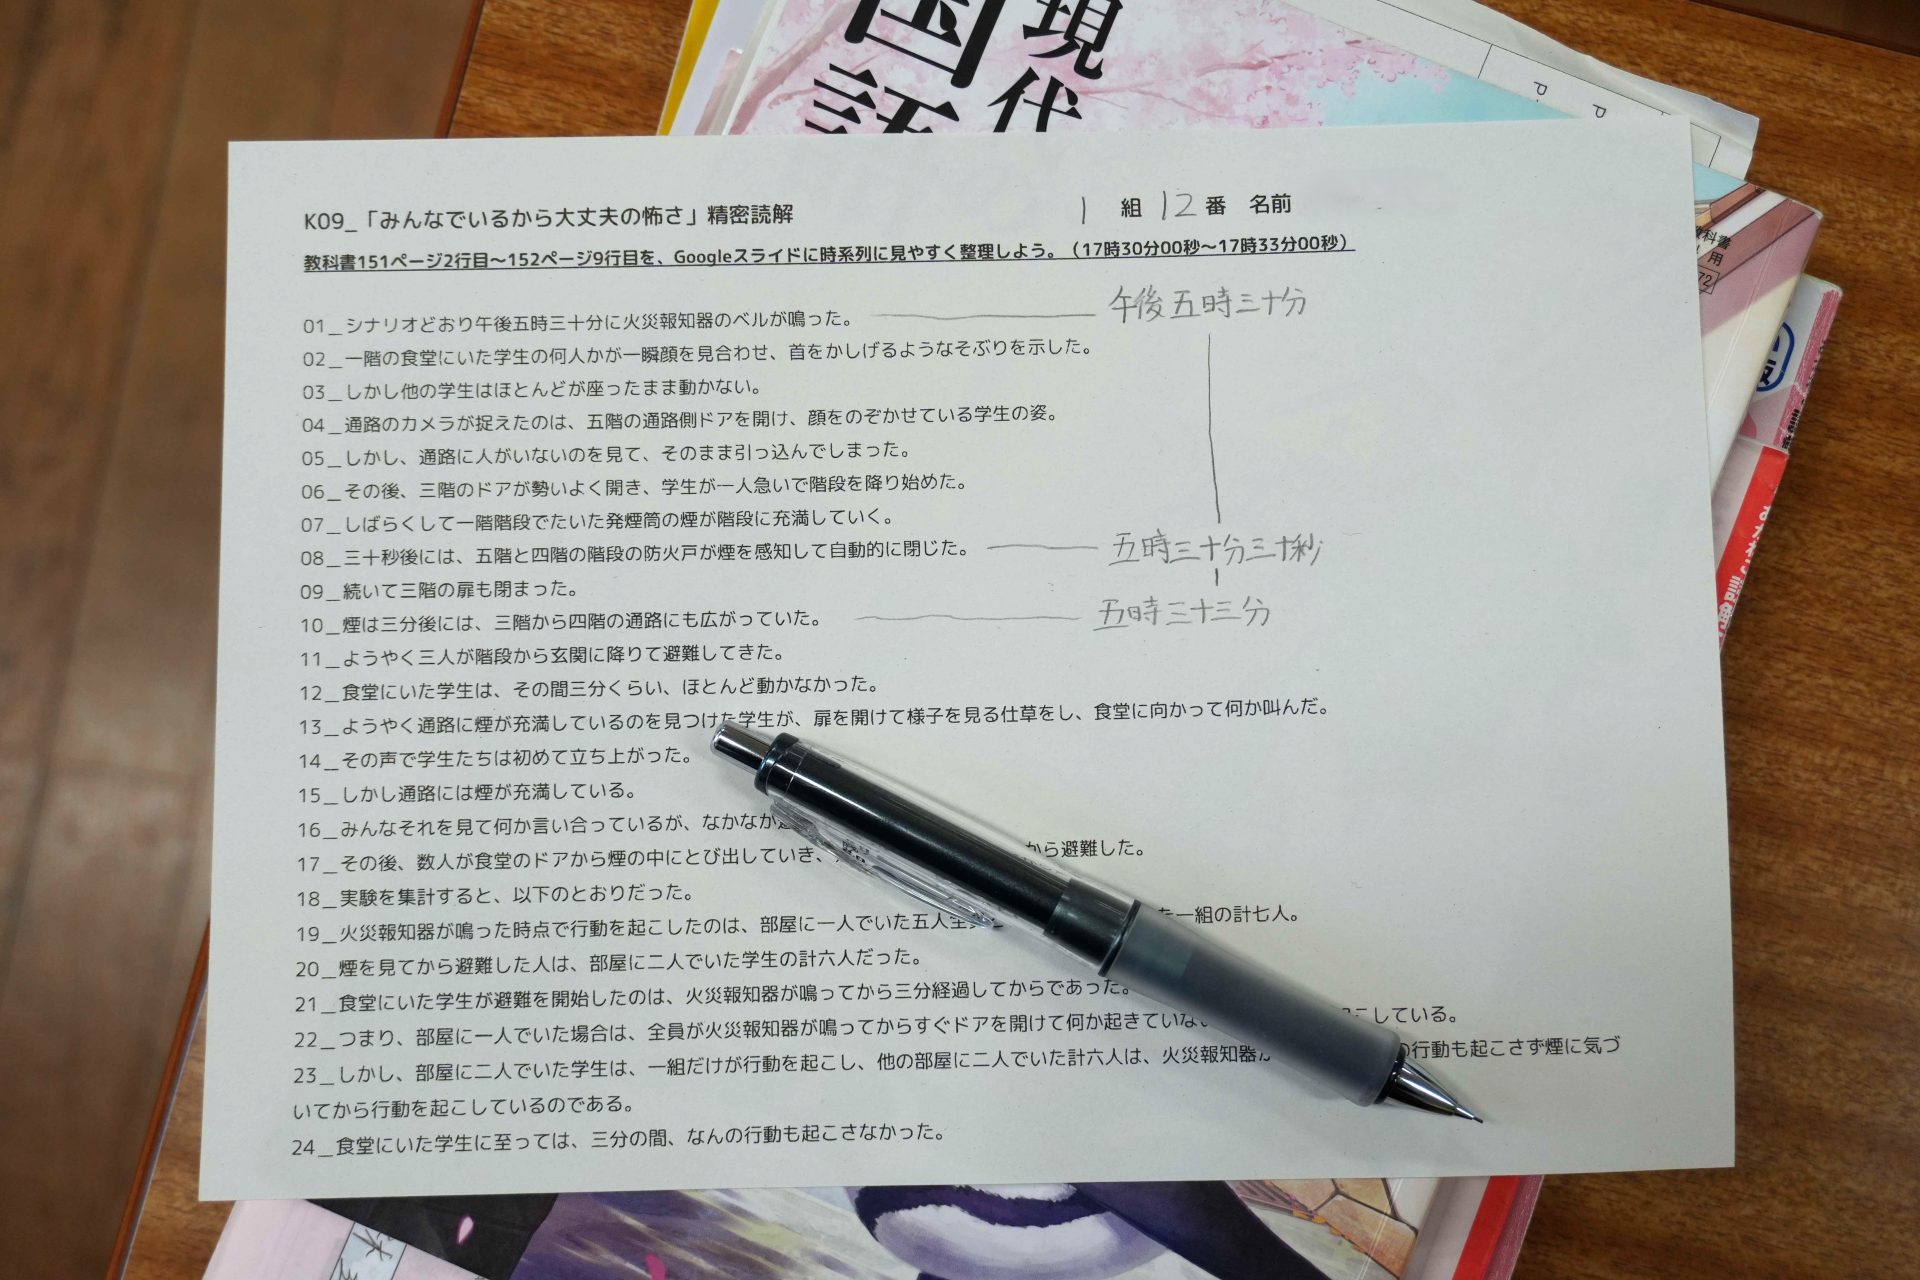 現代
国語
P
P
教科書
用
72
K09_「みんなでいるから大丈夫の怖さ」精密読解 1 組 12 番 名前
教科書151ページ2行目～152ページ9行目を、Googleスライドに時系列に見やすく整理しよう。（17時30分00秒～17時33分00秒）
01_シナリオどおり午後五時三十分に火災報知器のベルが鳴った。 午後五時三十分
02_一階の食堂にいた学生の何人かが一瞬顔を見合わせ、首をかしげるようなそぶりを示した。
03_しかし他の学生はほとんどが座ったまま動かない。
04_通路のカメラが捉えたのは、五階の通路側ドアを開け、顔をのぞかせている学生の姿。
05_しかし、通路に人がいないのを見て、そのまま引っ込んでしまった。
06_その後、三階のドアが勢いよく開き、学生が一人急いで階段を降り始めた。
07_しばらくして一階階段でたいた発煙筒の煙が階段に充満していく。
08_三十秒後には、五階と四階の階段の防火戸が煙を感知して自動的に閉じた。 五時三十分三十秒
09_続いて三階の扉も閉まった。
10_煙は三分後には、三階から四階の通路にも広がっていた。 五時三十三分
11_ようやく三人が階段から玄関に降りて避難してきた。
12_食堂にいた学生は、その間三分くらい、ほとんど動かなかった。
13_ようやく通路に煙が充満しているのを見つけた学生が、扉を開けて様子を見る仕草をし、食堂に向かって何か叫んだ。
14_その声で学生たちは初めて立ち上がった。
15_しかし通路には煙が充満している。
16_みんなそれを見て何か言い合っているが、なかなか
17_その後、数人が食堂のドアから煙の中にとび出していき、 から避難した。
18_実験を集計すると、以下のとおりだった。
19_火災報知器が鳴った時点で行動を起こしたのは、部屋に一人でいた五人全 た一組の計七人。
20_煙を見てから避難した人は、部屋に二人でいた学生の計六人だった。
21_食堂にいた学生が避難を開始したのは、火災報知器が鳴ってから三分経過してからであった。
22_つまり、部屋に一人でいた場合は、全員が火災報知器が鳴ってからすぐドアを開けて何か起きていな こしている。
23_しかし、部屋に二人でいた学生は、一組だけが行動を起こし、他の部屋に二人でいた計六人は、火災報知器が の行動も起こさず煙に気づ
いてから行動を起こしているのである。
24_食堂にいた学生に至っては、三分の間、なんの行動も起こさなかった。